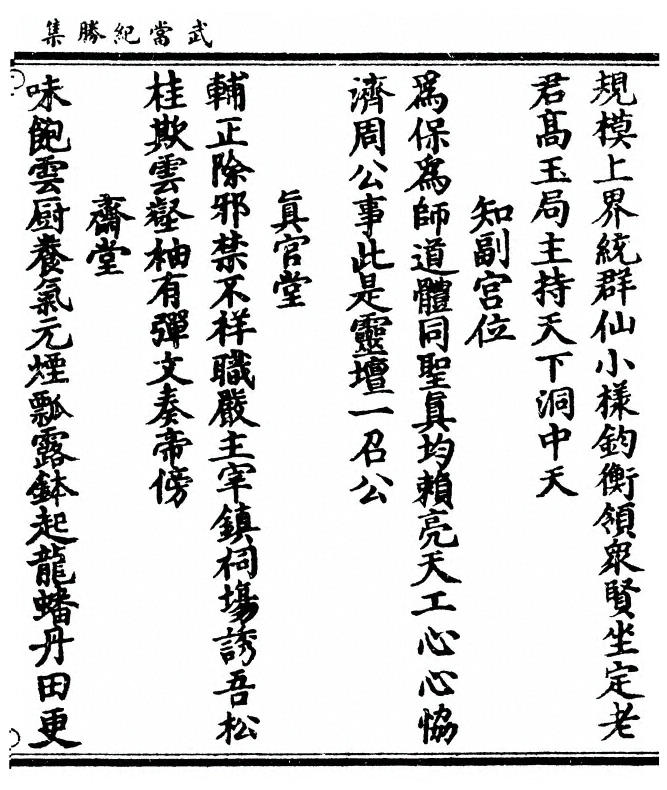 武當紀勝集
規模上界統群仙小樣鈞衡領衆賢坐定老
君髙玉局主持天下洞中天
知副宫位
爲保爲師道體同聖眞均賴亮天工心心恊
濟周公事此是靈壇一召公
眞官堂
輔正除邪禁不祥職嚴主宰鎮祠塲誘吾松
桂欺雲壑柚有彈文奏帝傍
齋堂
味飽雲厨養氣元煙瓢露鉢起龍蟠丹田更